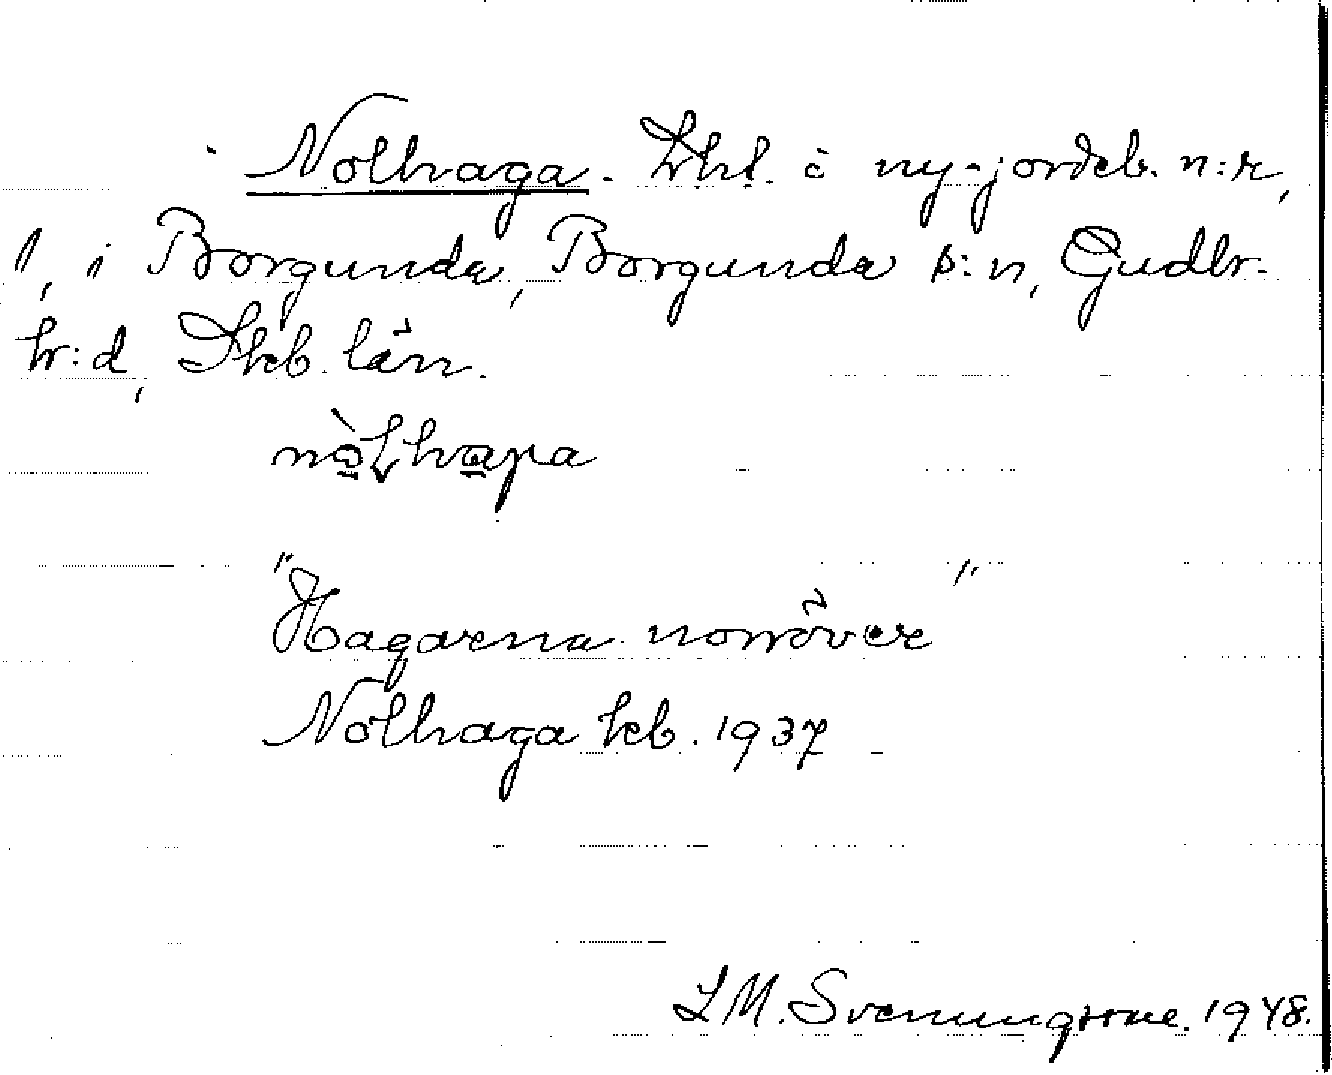 Nolhaga. Lht. å ny-jordeb. n:r,
1, i Borgunda, Borgunda s:n, Gudh.
h:d, Skb. län.
nòlhaga
"Hagarna norröver"
Nolhaga kb. 1937
L M. Svenungsson. 1948.